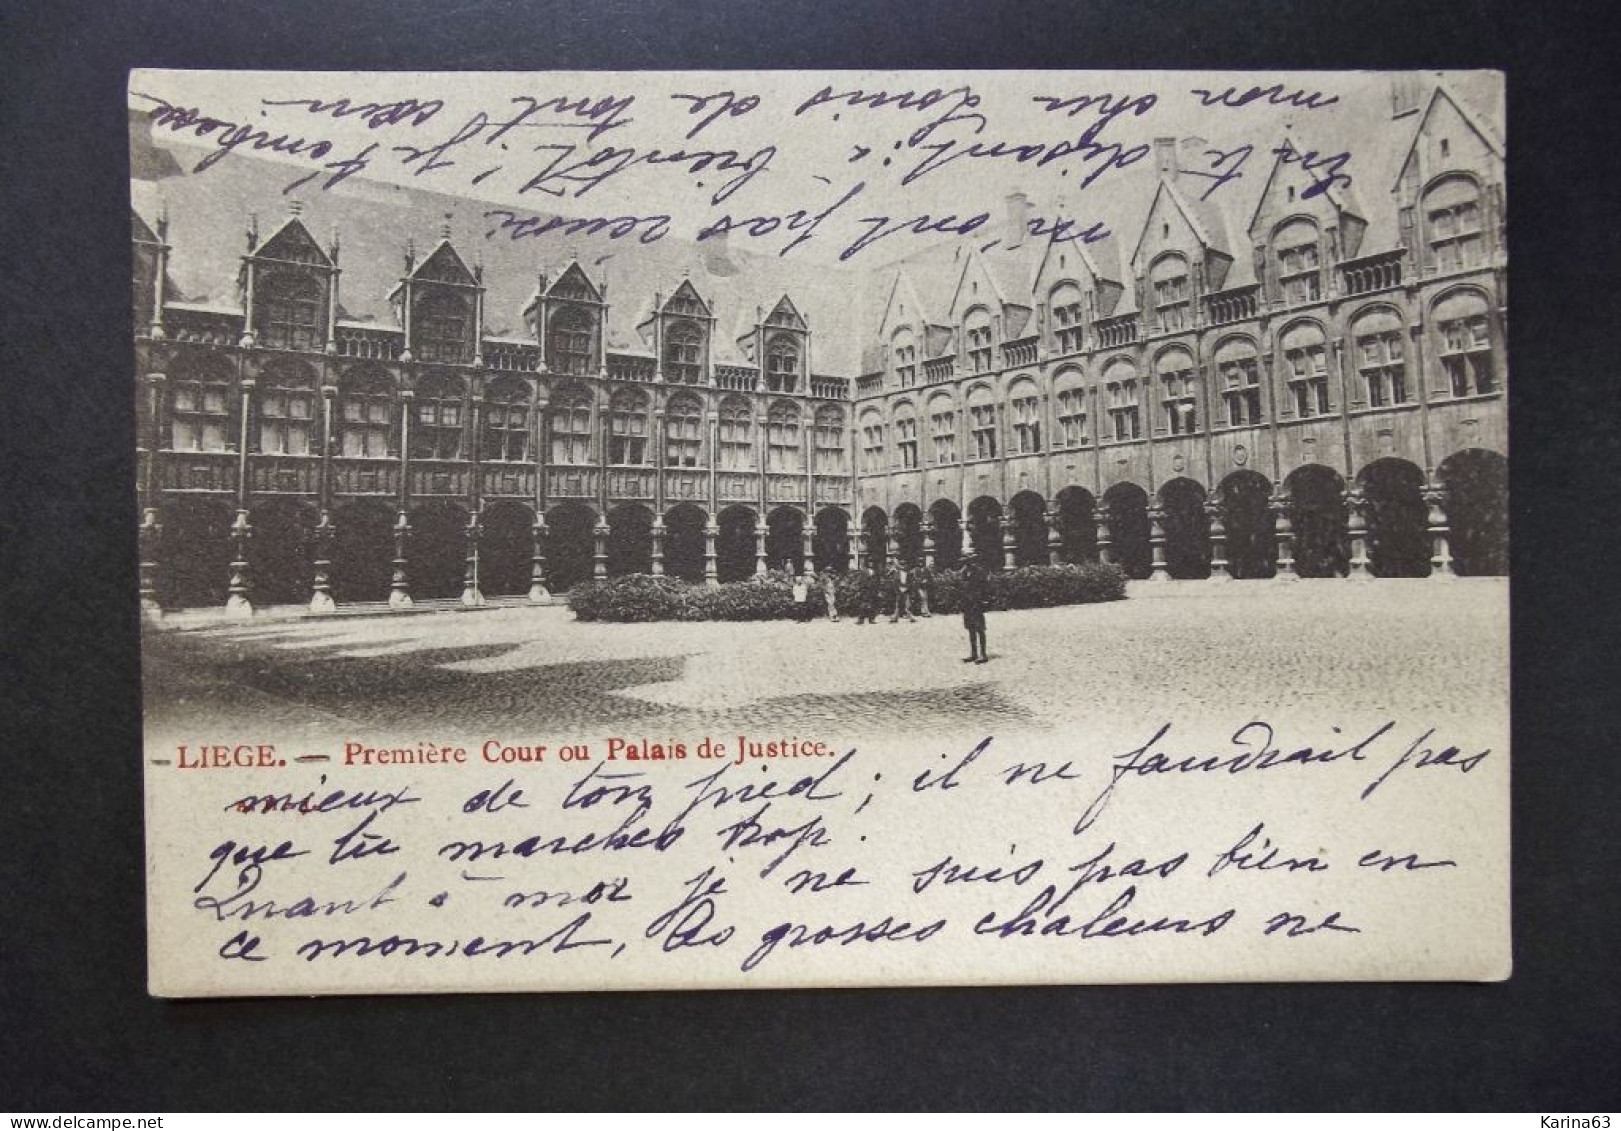 LIEGE. — Première Cour ou Palais de Justice.
mieux de ton pied ; il ne faudrait pas
que tu marches trop.
Quant à moi je ne suis pas bien en
ce moment, les grosses chaleurs ne
m'ont pas réussi
En te disant : à bientôt, je t'embrasse
mon cher Louis de tout cœur
Karina63